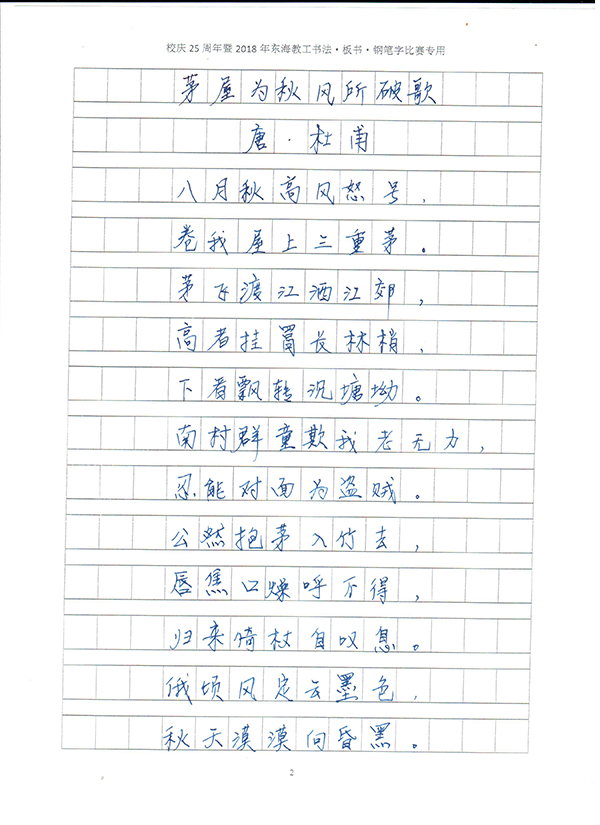 校庆 25 周年暨 2018 年东海教工书法·板书·钢笔字比赛专用
茅屋为秋风所破歌
唐·杜甫
八月秋高风怒号,
卷我屋上三重茅。
茅飞渡江洒江郊,
高者挂罥长林梢,
下者飘转沉塘坳。
南村群童欺我老无力,
忍能对面为盗贼。
公然抱茅入竹去,
唇焦口燥呼不得,
归来倚杖自叹息。
俄顷风定云墨色,
秋天漠漠向昏黑。
2